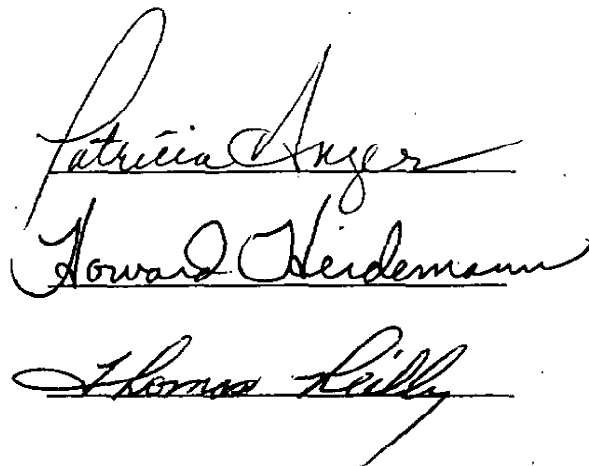 Patricia Anger
Howard Heidemann
Thomas Reilly